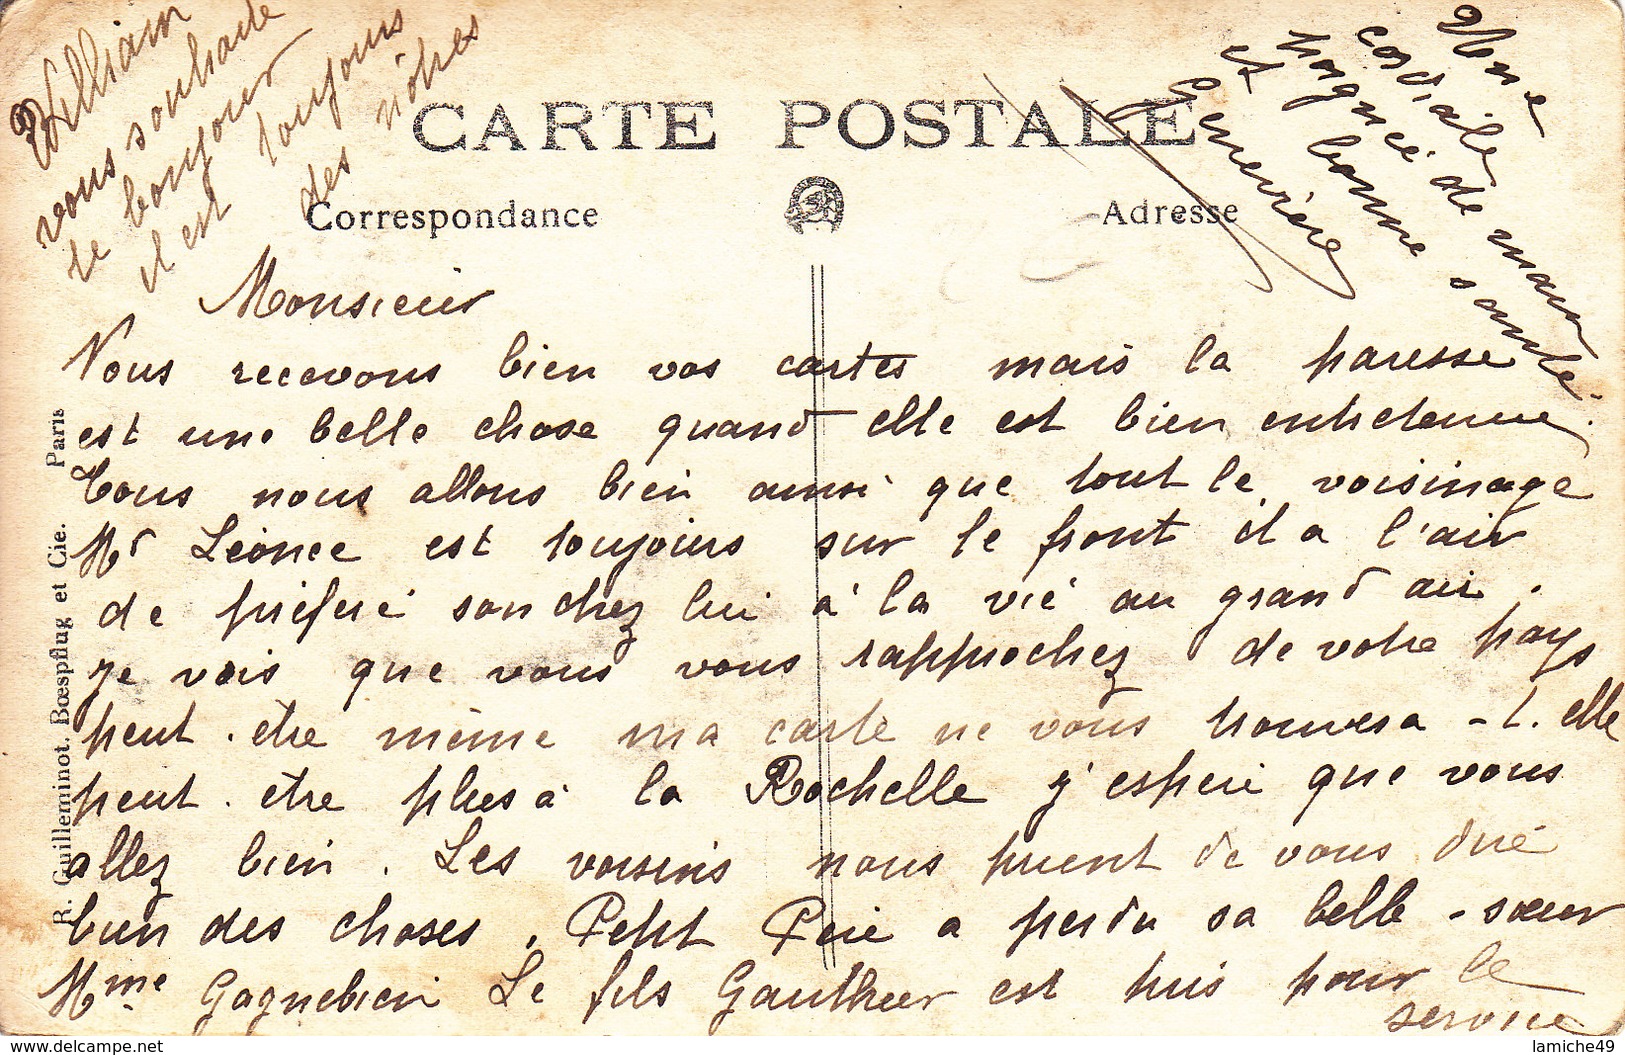 William
vous souhaite
le bonjour
il est toujours
des nôtres
Une
cordiale
poignée de main
et bonne santé
Geneviève
CARTE POSTALE
Correspondance
Adresse
Monsieur
Nous recevons bien vos cartes mais la paresse
est une belle chose quand elle est bien entretenue.
Tous nous allons bien ainsi que tout le voisinage
Mr Léonce est toujours sur le front il a l'air
de préféré son chez lui à la vie au grand air.
je vois que vous vous rapprochez de votre pays
peut-etre même ma carte ne vous trouvera-t-elle
peut-etre plus à la Rochelle j'espere que vous
allez bien. Les voisins nous prient de vous dire
bien des choses. Petit Père a perdu sa belle-sœur
Mme Gagnebien Le fils Gauthier est pris pour le
service
R. Guilleminot, Bœspflug et Cie. Paris
www.delcampe.net
lamiche49